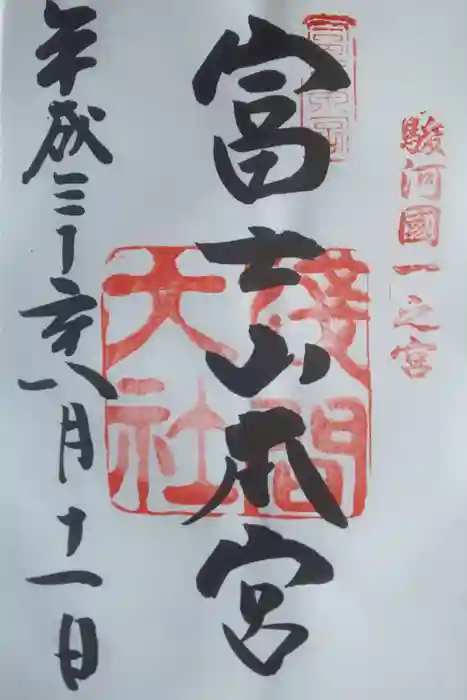 駿河國一之宮
富士山本宮
淺間
大社
平成三十年八月十一日